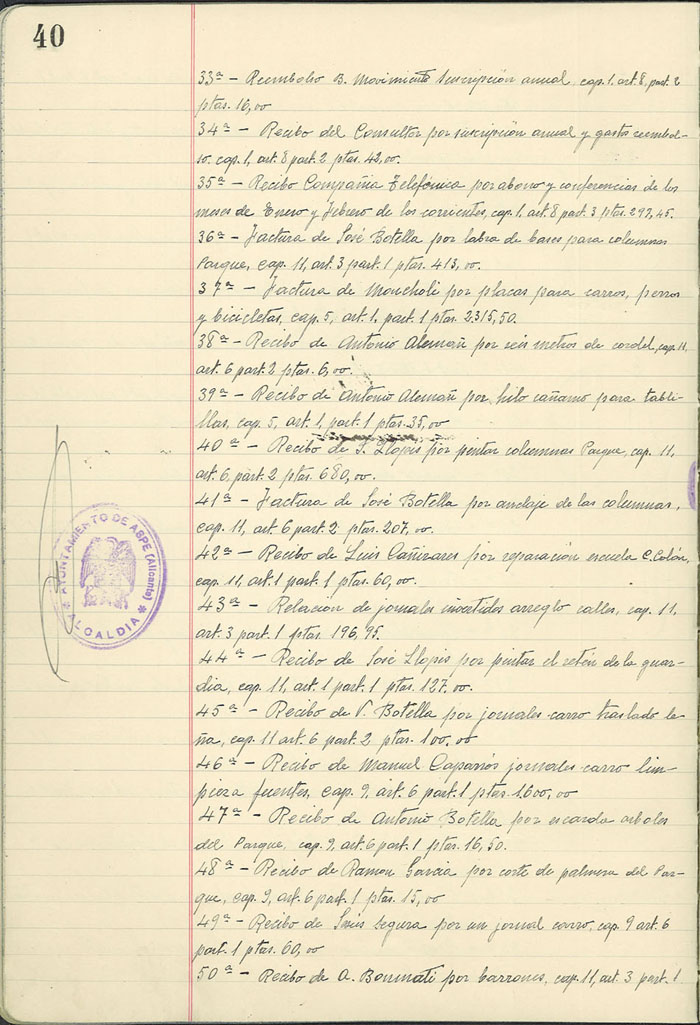 40
33ª - Reembolso B. Movimiento suscripción anual, cap. 1, art. 8, part. 2
ptas. 16,00
34ª - Recibo del Consultor por suscripción anual y gastos reembol-
so. cap. 1, art. 8 part. 2 ptas. 42,00.
35ª - Recibo Compañia Telefónica por abono y conferencias de los
meses de Enero y Febrero de los corrientes, cap. 1, art. 8 part. 3 ptas. 297,45.
36ª - Factura de José Botella por labra de bases para columnas
Parque, cap. 11, art. 3 part. 1 ptas. 413,00.
37ª - Factura de Moncholi por placas para carros, perros
y bicicletas, cap. 5, art. 1, part. 1 ptas. 2.315,50.
38ª - Recibo de Antonio Alemañ por seis metros de cordel, cap. 11,
art. 6 part. 2 ptas. 6,00.
39ª - Recibo de Antonio Alemañ por hilo cañamo para tabli-
llas, cap. 5, art. 1, part. 1 ptas. 35,00
40ª - Recibo de J. Llopis por pintar columnas Parque, cap. 11,
art. 6, part. 2 ptas. 680,00.
41ª - Factura de José Botella por anclaje de las columnas,
cap. 11, art. 6 part. 2 ptas. 207,00.
42ª - Recibo de Luis Cañizares por reparación escuela C. Colón,
cap. 11, art. 1 part. 1 ptas. 60,00.
43ª - Relación de jornales invertidos arreglo calles, cap. 11,
art. 3 part. 1 ptas. 196,95.
44ª - Recibo de José Llopis por pintar el retén de la guar-
dia, cap. 11, art. 1 part. 1 ptas. 127,00.
45ª - Recibo de V. Botella por jornales carro traslado le-
ña, cap. 11 art. 6 part. 2 ptas. 100,00
46ª - Recibo de Manuel Caparrós jornales carro lim-
pieza fuentes, cap. 9, art. 6 part. 1 ptas. 1.600,00
47ª - Recibo de Antonio Botella por escarda arboles
del Parque, cap. 9, art. 6 part. 1 ptas. 16,50.
48ª - Recibo de Ramon Garcia por corte de palmera del Par-
que, cap. 9, art. 6 part. 1 ptas. 15,00
49ª - Recibo de Luis Segura por un jornal carro, cap. 9 art. 6
part. 1 ptas. 60,00
50ª - Recibo de A. Bonmati por barrones, cap. 11, art. 3 part. 1
AYUNTAMIENTO DE ASPE (Alicante)
* ALCALDIA *